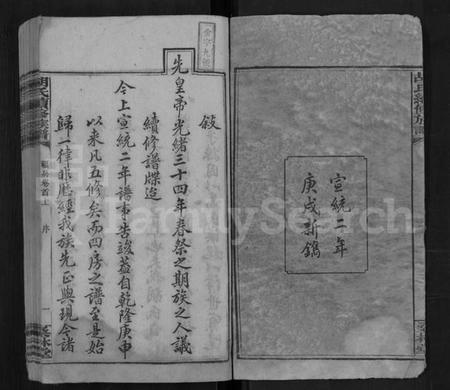 宣統二年
庚戌新鐫
敘
先皇帝光緒三十四年春祭之期族之人議
續修譜牒迨
今上宣統二年譜事告竣蓋自乾隆庚申
以來凡五修矣而四房之譜至是始
歸一律非歷經我族先正與現今諸
胡氏續修族譜
卷首上 序 一
FamilySearch